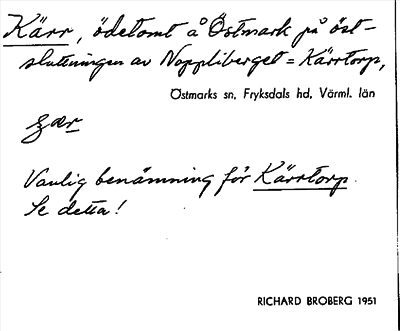 Kärr, ödetomt å Östmark på öst-
sluttningen av Noppliberget = Kärrtorp,
Östmarks sn, Fryksdals hd, Värml. län
Vanlig benämning för Kärrtorp.
Se detta!
RICHARD BROBERG 1951